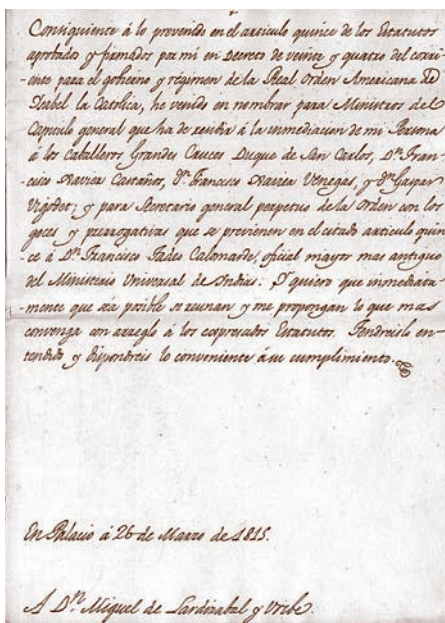 Consiguiente á lo prevenido en el articulo quince de los Estatutos
aprobado y firmados por mi en Decreto de veinte y quatro del corri-
-ente para el gobierno y régimen de la Real Orden Americana de
Isabel la Católica, he venido en nombrar para Ministros del
Capitulo general que ha de residir á la inmediacion de mi Persona
á los Caballeros Grandes Cruces Duque de San Carlos, Dn. Fran-
-cisco Xavier Castaños, Dn. Francisco Xavier Venegas, y Dn. Gaspar
Vigodet; y para Secretario general perpetuo de la Orden con los
goces y prerrogativas que se previenen en el citado articulo quin-
ce á Dn. Francisco Tadeo Calomarde, oficial mayor mas antiguo
del Ministerio Universal de Indias: Y quiero que inmediata-
-mente que sea posible se reunan y me propongan lo que mas
convenga con arreglo á los expresados Estatutos. Tendreislo en-
tendido y dispondreis lo conveniente á su cumplimiento.
En Palacio á 26 de Marzo de 1815.
A Dn. Miguel de Lardizabal y Uribe.